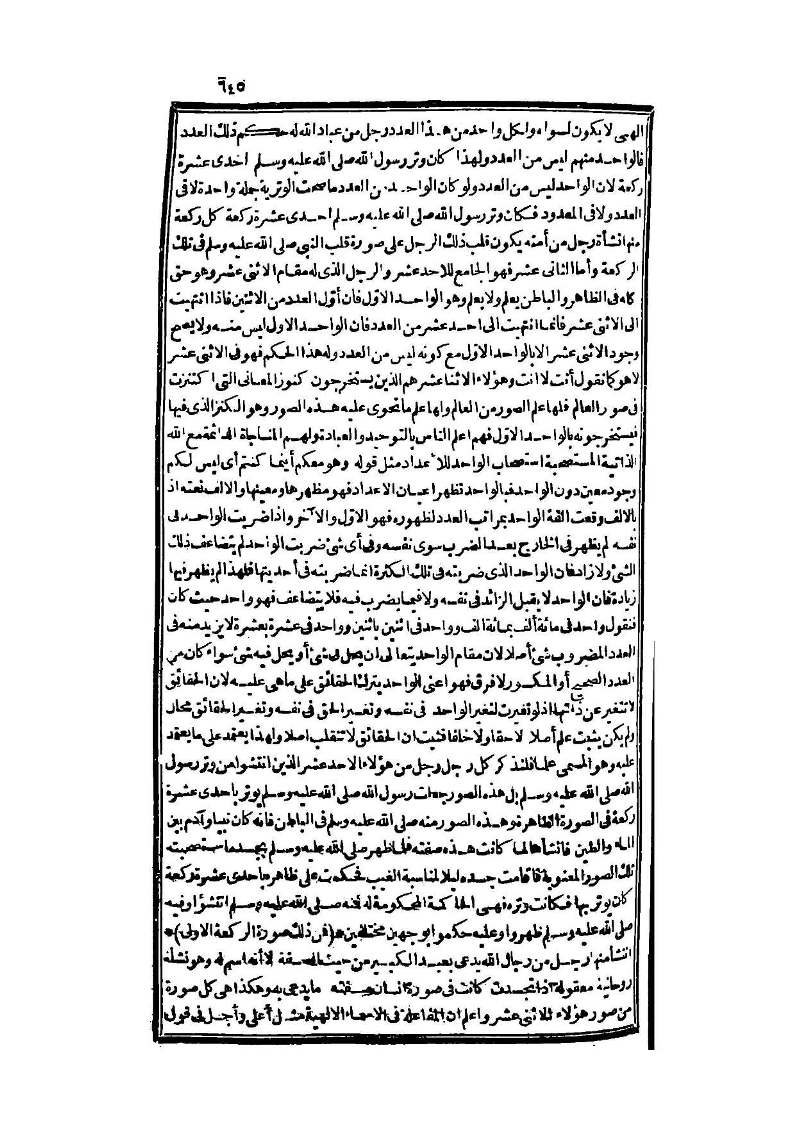 ٦٤٥
الهى لا يكون لسواه ولكل واحد من هذا العدد رجل من عباد الله له حكم ذلك العدد
فالواحد منهم ليس من العدد ولهذا كان وتر رسول الله صلى الله عليه وسلم احدى عشرة
ركعة لان الواحد ليس من العدد ولو كان الواحد من العدد ما صحت الوترية جملة واحدة لا فى
العدد ولا فى المعدود فكان وتر رسول الله صلى الله عليه وسلم احدى عشرة ركعة كل ركعة
منها نشأة رجل من أمته يكون قلب ذلك الرجل على صورة قلب النبى صلى الله عليه وسلم فى تلك
الركعة وأما الثانى عشر فهو الجامع للاحد عشر والرجل الذى له مقام الاثنى عشر وهو حق
كله فى الظاهر والباطن يعلم ولا يعلم وهو الواحد الاول فان أوّل العدد من الاثنين فاذا انتهيت
الى الاثنى عشر فانما انتهيت الى احد عشر من العدد فان الواحد الاول ليس منه ولا يصح
وجود الاثنى عشر الا بالواحد الاوّل مع كونه ليس من العدد وله هذا الحكم فهو فى الاثنى عشر
لا هو كما تقول أنت لا انت وهؤلاء الاثنا عشر هم الذين يستخرجون كنوز المعانى التى اكتنزت
فى صور العالم فلها علم الصور من العالم ولها علم ما تحوى عليه هذه الصور وهو الكنز الذى فيها
فيستخرجونه بالواحد الاول فهم اعلم الناس بالتوحيد والعبادة ولهم المناجاة الدائمة مع الله
الذاتية المستصحبة استصحاب الواحد للاعداد مثل قوله وهو معكم أينما كنتم أى ليس لكم
وجود معين دون الواحد فبالواحد تظهر اعيان الاعداد فهو مظهرها ومعينها والالف نعته اذ
بالالف وقعت الفة الواحد بمراتب العدد لظهوره فهو الاول والآخر واذا ضربت الواحد فى
نفسه لم يظهر فى الخارج بعد الضرب سوى نفسه وفى أى شئ ضربت الواحد لم يتضاعف ذلك
الشئ ولا زاد فان الواحد الذى ضربته فى تلك الكثرة انما ضربته فى أحديتها فلهذا لم يظهر فيها
زيادة فان الواحد لا يقبل الزائد فى نفسه ولا فيما يضرب فيه فلا يتضاعف فهو واحد حيث كان
فتقول واحد فى مائة ألف بمائة الف وواحد فى اثنين باثنين وواحد فى عشرة بعشرة لا يزيد منه فى
العدد المضروب شئ أصلا لان مقام الواحد يتعالى ان يحل فى شئ أو يحل فيه شئ سواء كان من
العدد الصحيح أو المكسور لا فرق فهو اعنى الواحد يترك الحقائق على ما هى عليه لان الحقائق
لا تتغير عن ذاتها اذ لو تغيرت لتغير الواحد فى نفسه وتغير الحق فى نفسه وتغير الحقائق محال
ولم يكن يثبت علم أصلا لا حقا ولا خلقا فثبت ان الحقائق لا تنقلب اصلا ولهذا يعتمد على ما يعتمد
عليه وهو المسمى علما فلنذكر كل رجل رجل من هؤلاء الاحد عشر الذين انتشوا من وتر رسول
الله صلى الله عليه وسلم بل هذه الصور جعلت رسول الله صلى الله عليه وسلم يوتر باحدى عشرة
ركعة فى الصورة الظاهرة وهذه الصور منه صلى الله عليه وسلم فى الباطن فانه كان نبيا وآدم بين
الماء والطين فانشأها لما كانت هذه صفته فلما ظهر صلى الله عليه وسلم بجسده استصحبته
تلك الصور المعنوية فاقامت جسده ليلا لمناسبة الغيب فحكمت على ظاهره باحدى عشرة ركعة
كان يوتر بها فكانت وتره فهى الحاكمة المحكومة له فمنه صلى الله عليه وسلم انتشؤا وفيه
صلى الله عليه وسلم ظهروا وعليه حكموا بوجهين مختلفين *(فن ذلك صورة الركعة الاولى)*
انتشأ منها رجل من رجال الله يدعى بعبد الكبير من حيث الصفة لا أنه اسم له وهو نشأة
روحانية معقولة اذا تجسدت كانت فى صورة انسان صفته ما يدعى به وهكذا هى كل صورة
من صور هؤلاء الاثنى عشر واعلم ان المفاعلة فى الاسماء الالهية مثل أعلى وأجل فى قول